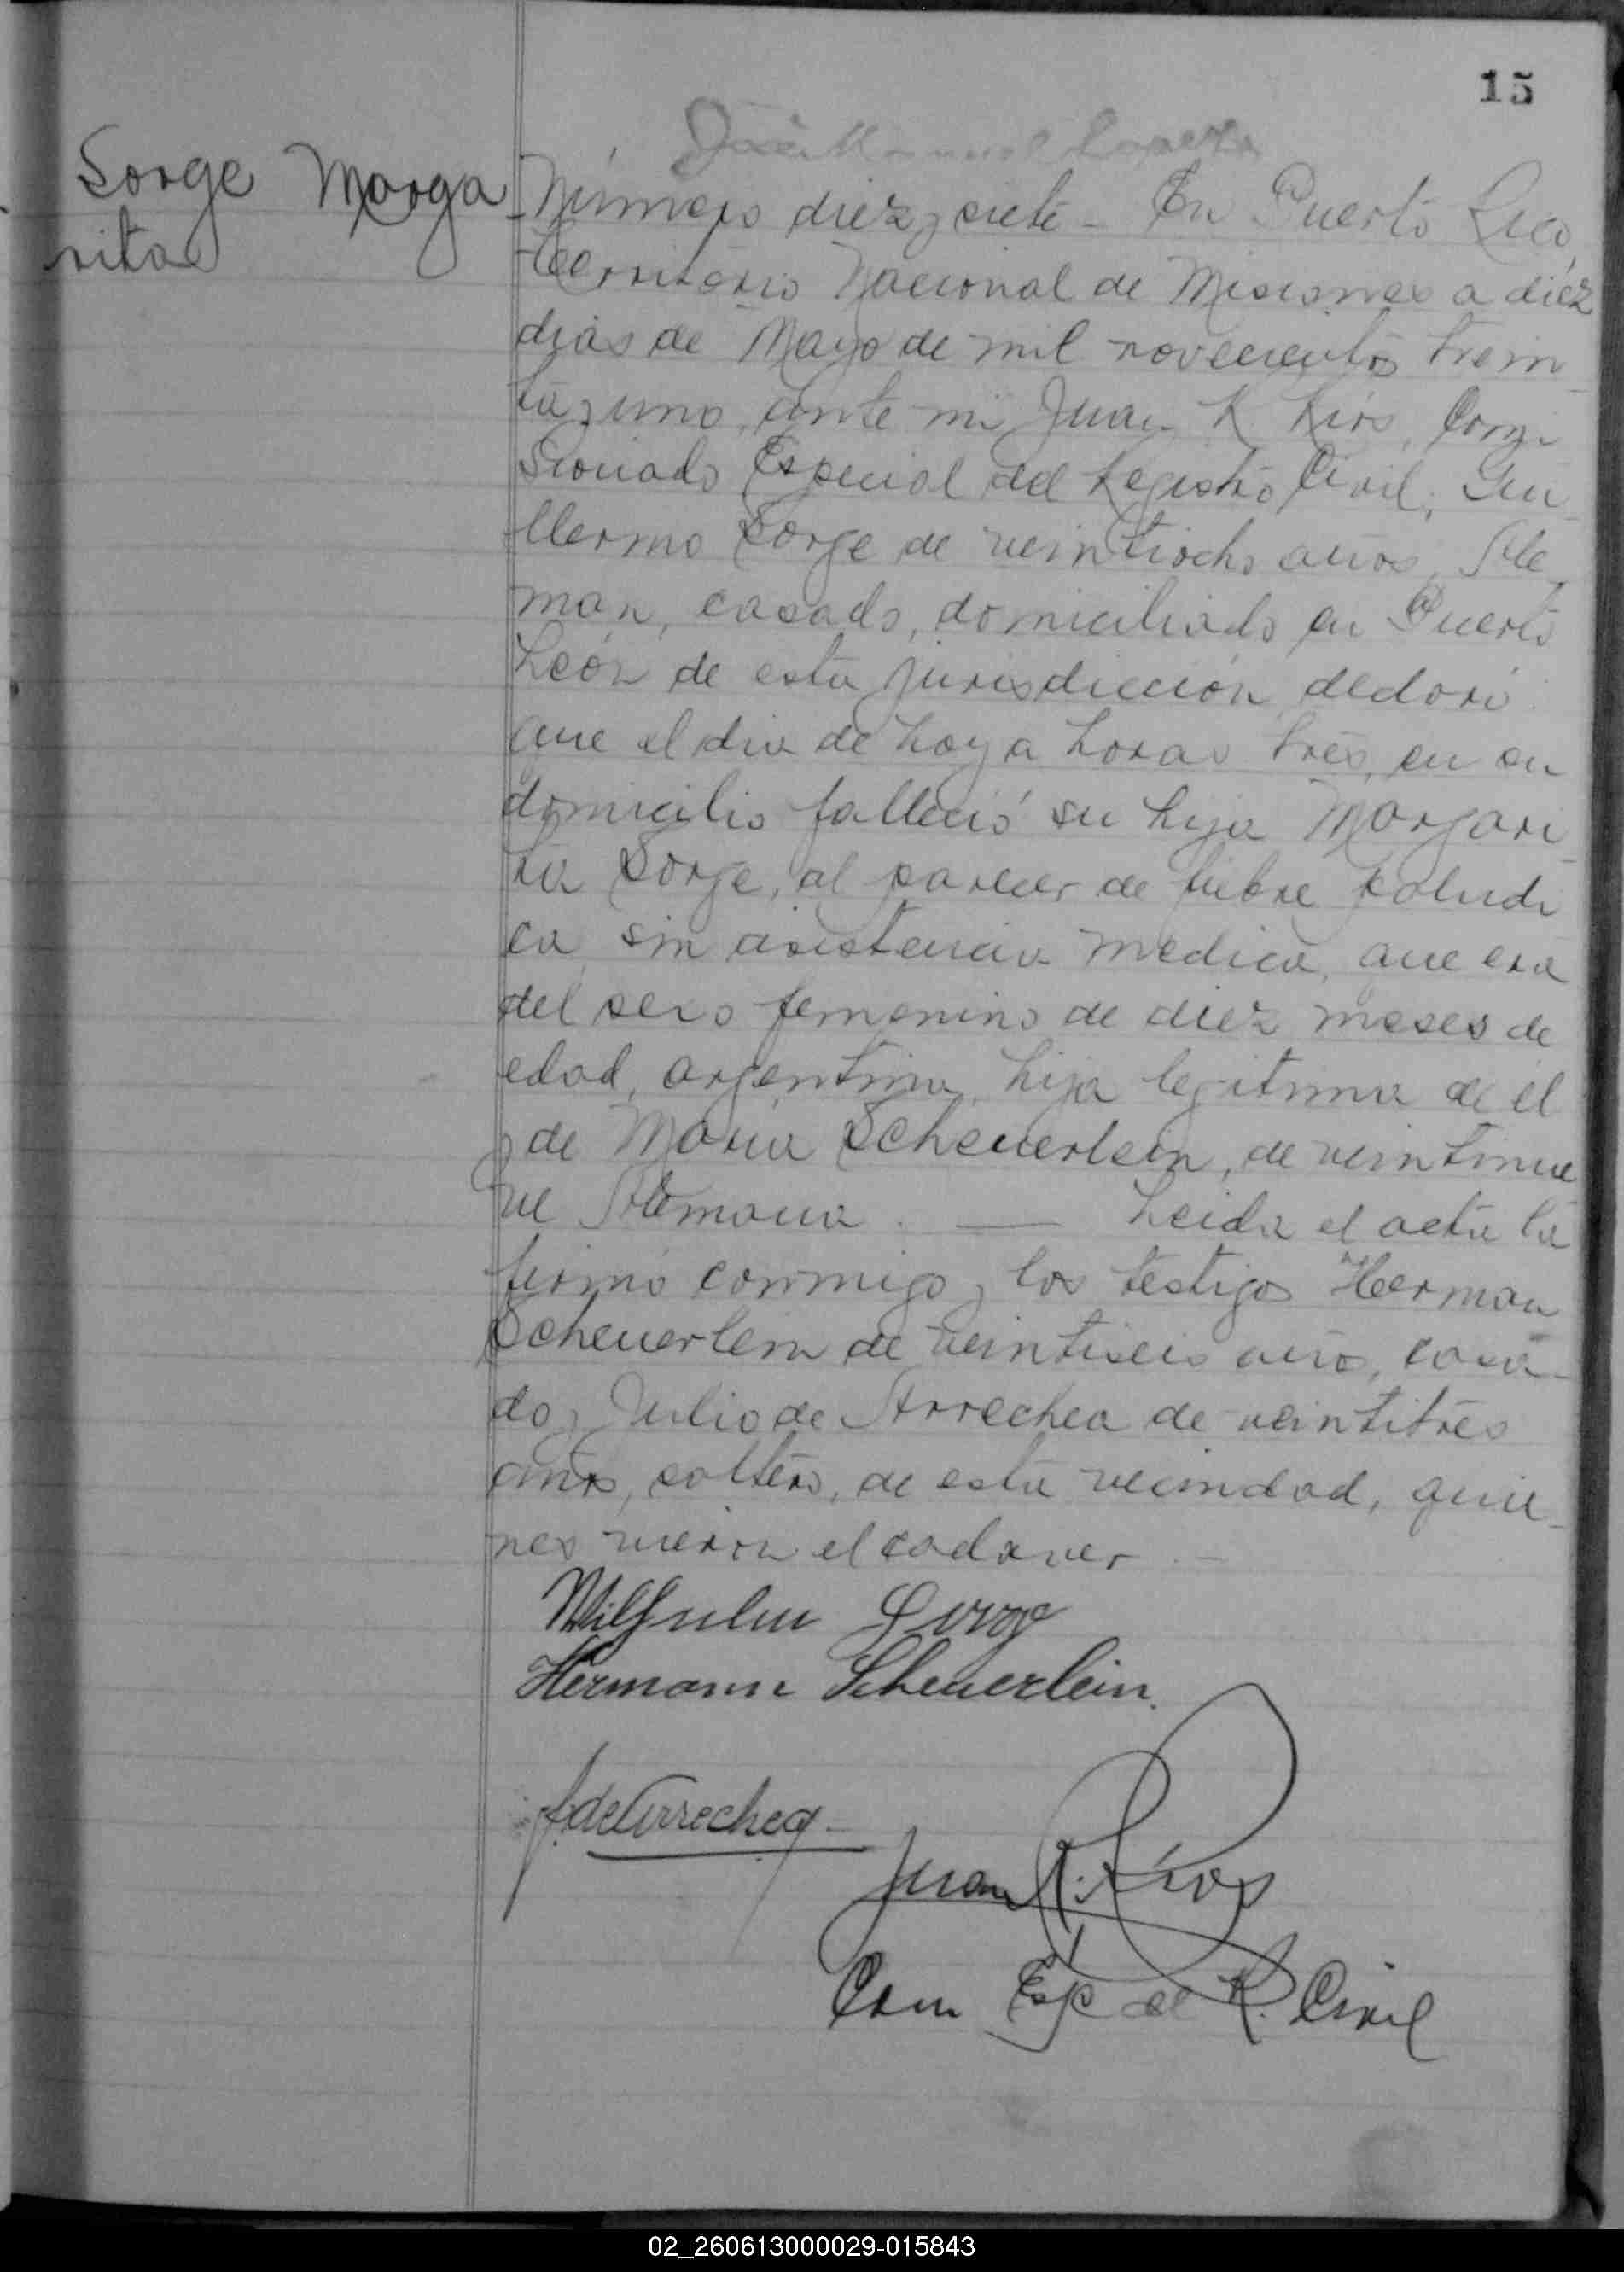 15
Sorge Marga
rita
Número diez y siete - En Puerto Rico,
Territorio Nacional de Misiones a diez
dias de Mayo de mil novecientos trein
ta y uno, ante mi Juan R. Rios, Comi
sionado Especial del Registro Civil, Gui
llermo Sorge de veintiocho años, Ale
man, casado, domiciliado en Puerto
León de esta jurisdicción, declaró
que el dia de hoy a horas tres, en su
domicilio falleció su hija Margari
ta Sorge, al parecer de fiebre paludi
ca sin asistencia medica, que era
del sexo femenino de diez meses de
edad, argentina, hija legitima de el
y de Maria Scheuerlein, de veintinue
ve Alemana. — Leida el acta la
firmó conmigo y los testigos Herman
Scheuerlein de veintiseis años, casa
do y Julio de Arrechea de veintitres
años, soltero, de esta vecindad, quie
nes vieron el cadaver. -
Wilhelm Sorge
Hermann Scheuerlein.
J. de Arrechea
Juan R. Rios
Com Esp del R. Civil
02_260613000029-015843